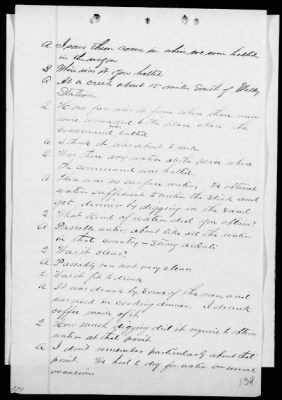 A I saw them come in when we were halted
in the wagon
Q Where was it you halted
A At a creek about 15 miles South of Valley
Station.
Q How far was it from where these men
were wounded to the place where the
command halted
A I think it was about 6 miles
Q Was there any water at the place where
the command was halted
A There was no surface water. We obtained
water sufficient to water the stock and
get dinner by digging in the sand
Q What kind of water did you obtain?
A Passable water, about like all the water
in that country - strong alkali
Q Was it clear?
A Passably so not very clear
Q Was it fit to drink
A It was drank by some of the men, and
was used in cooking dinner. I drank
coffee made of it.
Q How much digging did it require to obtain
water at that point
A I don't remember particularly about that
point. We had to dig for water on several
occasions